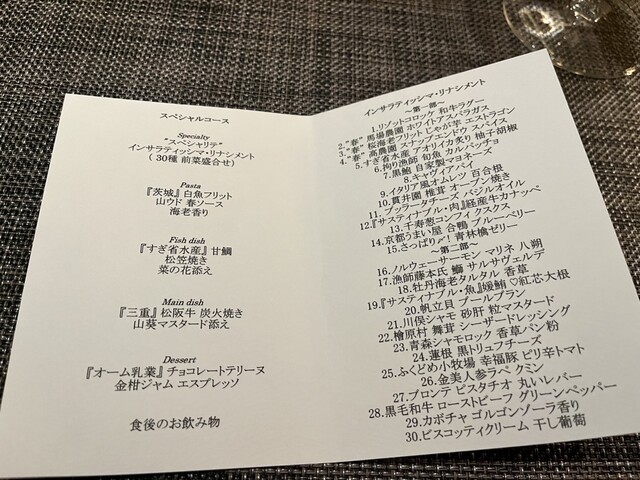 スペシャルコース
Specialty
"スペシャリテ"
インサラティッシマ・リナシメント
( 30種 前菜盛合せ)
Pasta
『茨城』白魚フリット
山ウド 春ソース
海老香り
Fish dish
『すぎ省水産』甘鯛
松笠焼き
菜の花添え
Main dish
『三重』松阪牛 炭火焼き
山葵マスタード添え
Dessert
『オーム乳業』チョコレートテリーヌ
金柑ジャム エスプレッソ
食後のお飲み物
インサラティッシマ・リナシメント
～第一部～
1.リゾットコロッケ 和牛ラグー
2."春" 馬場農園 ホワイトアスパラガス
3."春" 桜海老フリット じゃが芋 エストラゴン
4."春" 高農園 スナップエンドウ スパイス
5.すぎ省水産 アオリイカ炙り 柚子胡椒
6.拘り漁師 旬魚 カルパッチョ
7.黒鮑 自家製マヨネーズ
8.キャヴィアパイ
9.イタリア風オムレツ 百合根
10.貫井園 椎茸 オーブン焼き
11.ブッラータチーズ バジルオイル
12.『サスティナブル・肉』経産牛カナッペ
13.千寿葱コンフィ クスクス
14.京都うまい屋 合鴨 ブルーベリー
15.さっぱり〆! 青林檎ゼリー
～第二部～
16.ノルウェーサーモン マリネ 八朔
17.漁師藤本氏 鰤 サルサヴェルデ
18.牡丹海老タルタル 香草
19.『サスティナブル・魚』媛鮪♡紅芯大根
20.帆立貝 ブールブラン
21.川俣シャモ 砂肝 粒マスタード
22.檜原村 舞茸 シーザードレッシング
23.青森シャモロック 香草パン粉
24.蓮根 黒トリュフチーズ
25.ふくどめ小牧場 幸福豚 ピリ辛トマト
26.金美人参ラペ クミン
27.ブロンテ ピスタチオ 丸いレバー
28.黒毛和牛 ローストビーフ グリーンペッパー
29.カボチャ ゴルゴンゾーラ香り
30.ビスコッティクリーム 干し葡萄